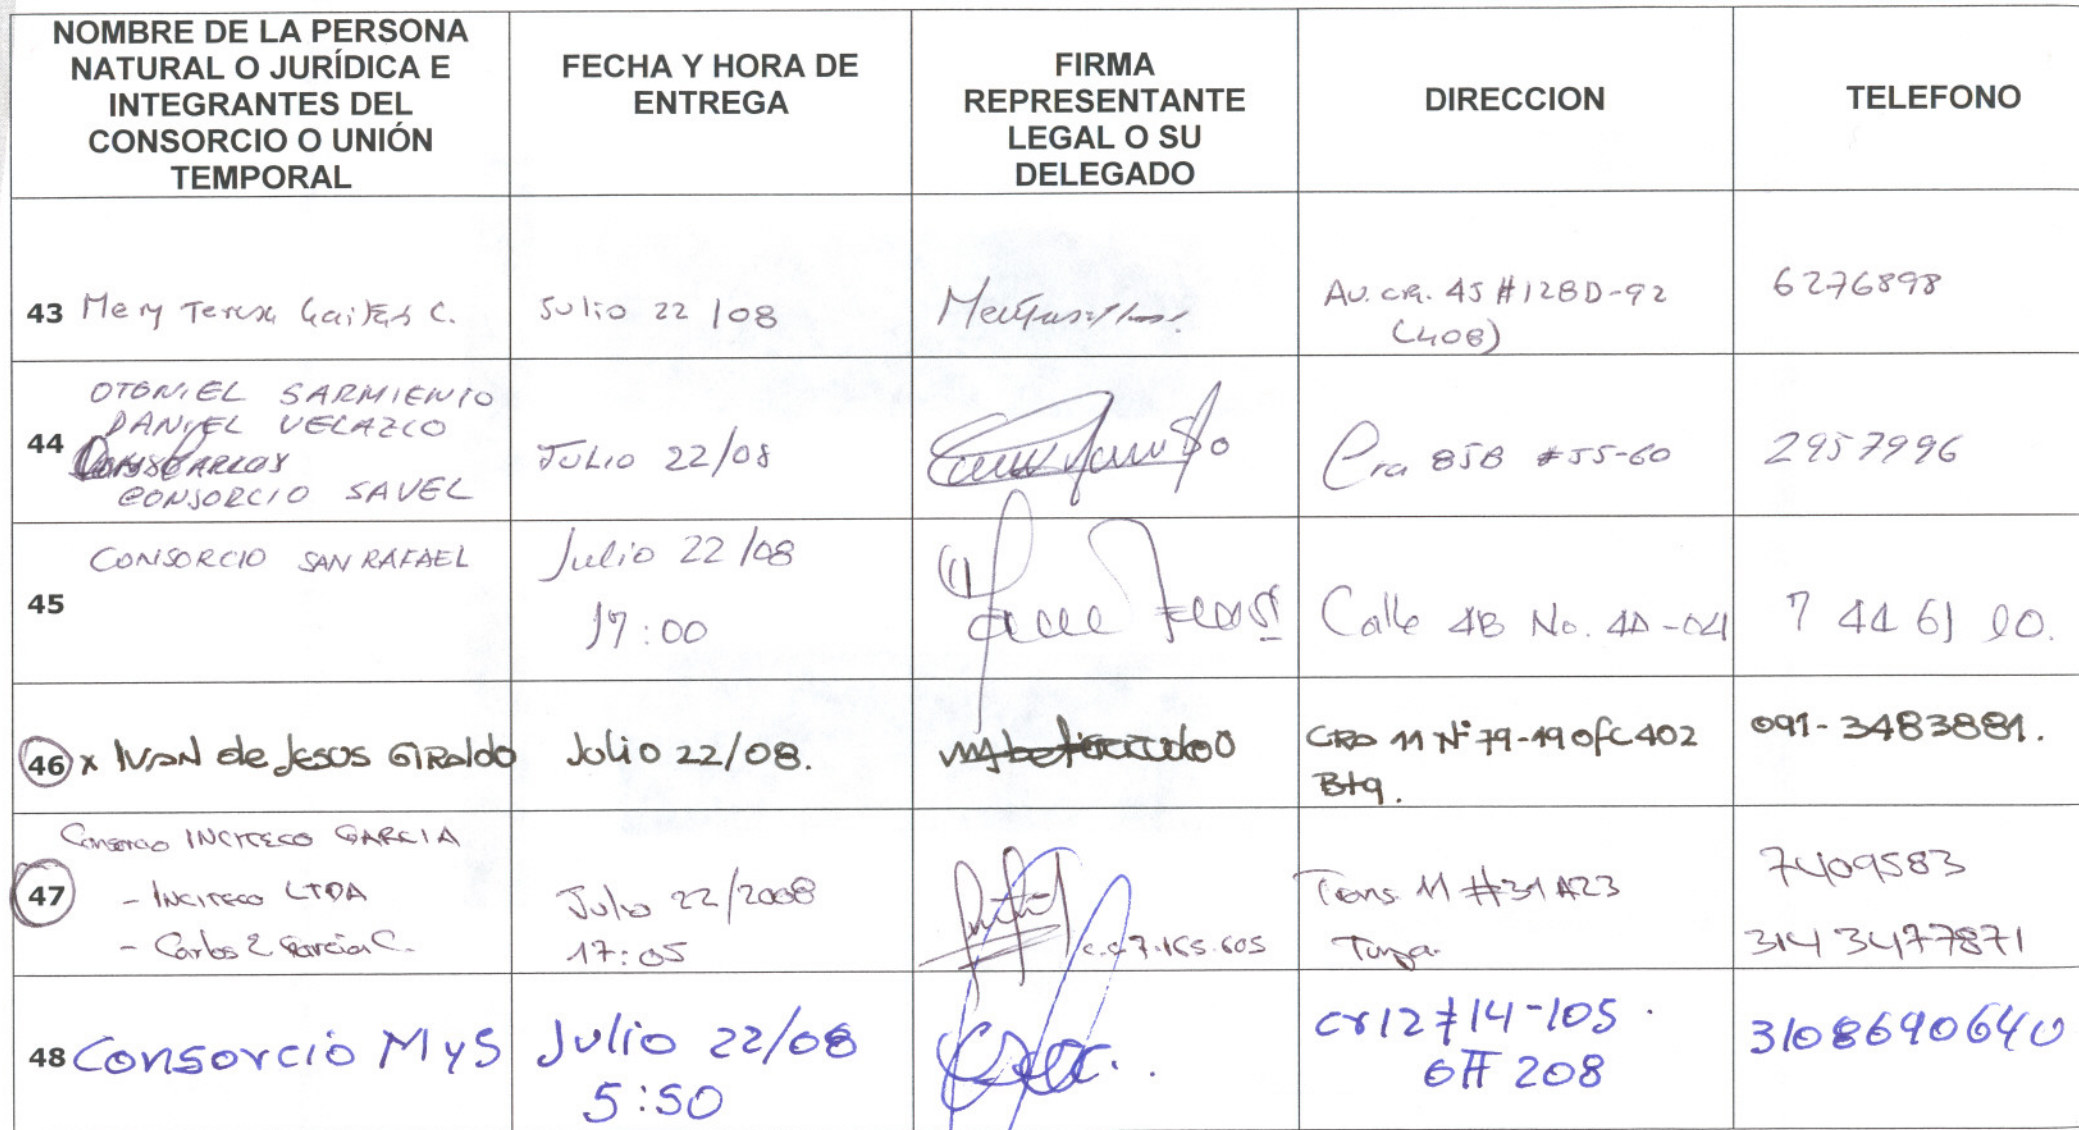 NOMBRE DE LA PERSONA
NATURAL O JURÍDICA E
INTEGRANTES DEL
CONSORCIO O UNIÓN
TEMPORAL
FECHA Y HORA DE
ENTREGA
FIRMA
REPRESENTANTE
LEGAL O SU
DELEGADO
DIRECCION
TELEFONO
43 Mery Teresa C.
Julio 22 /08
AV. CR. 45 #128D-92
(408)
6276898
44
OTONIEL SARMIENTO
DANIEL VELAZCO
CONSORCIO SAVEL
JULIO 22/08
Cra 85B #55-60
2957996
45
CONSORCIO SAN RAFAEL
Julio 22 /08
17:00
Calle 4B No. 4A-04
7 44 61 00.
46 x IVAN de Jesus GIRALDO
Julio 22/08.
CRA 11 Nº 79-19 OFC 402
Btq.
091-3483881.
47
Consorcio INCITECO GARCIA
- INCITECO LTDA
- Carlos E Garcia C.
Julio 22/2008
17:05
c.c 7.165.605
Trans. 11 #31A23
Tunja.
7409583
314 3477871
48 Consorcio MyS
Julio 22/08
5:50
cr 12 #14-105.
Off 208
3108690640